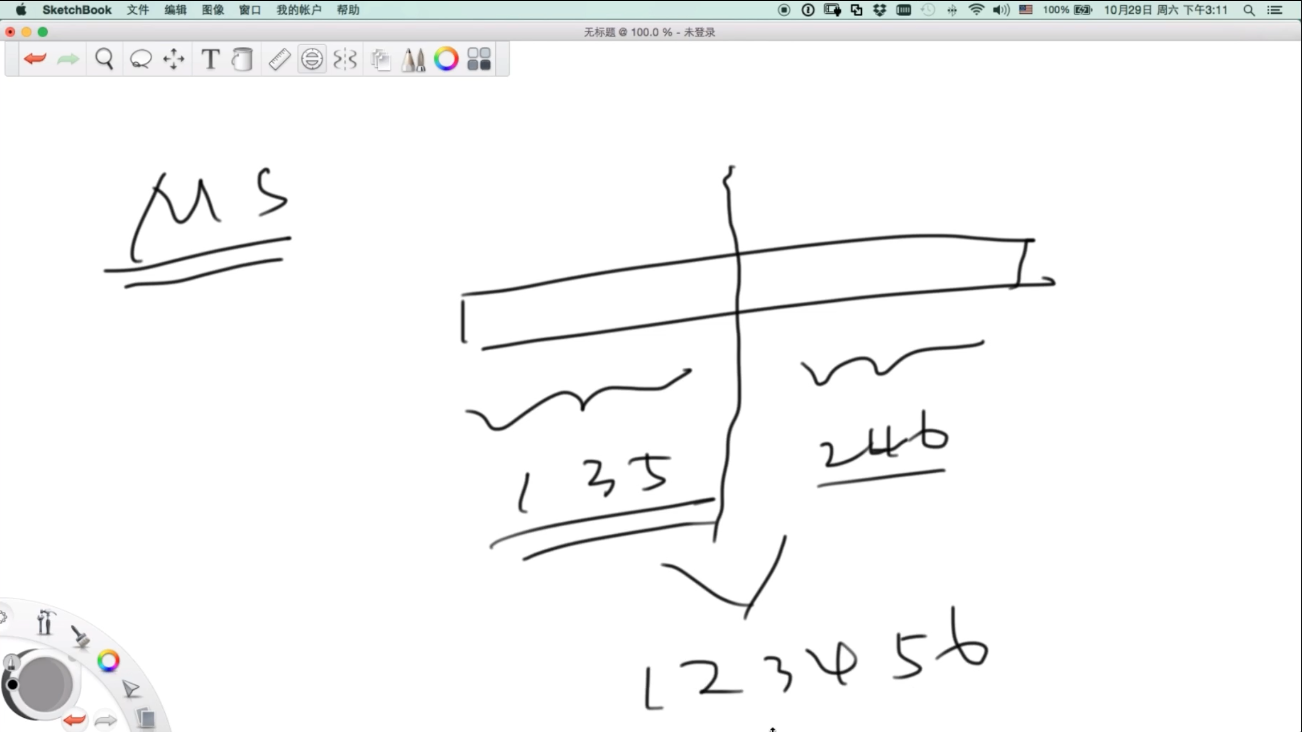 SketchBook 文件 编辑 图像 窗口 我的帐户 帮助 100% 10月29日 周六 下午3:11
无标题 @ 100.0 % - 未登录
T
MS
1 3 5
2 4 6
1 2 3 4 5 6